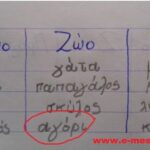 Ζώο
γάτα
παπαγάλος
σκύλος
αγόρι
www.e-mes